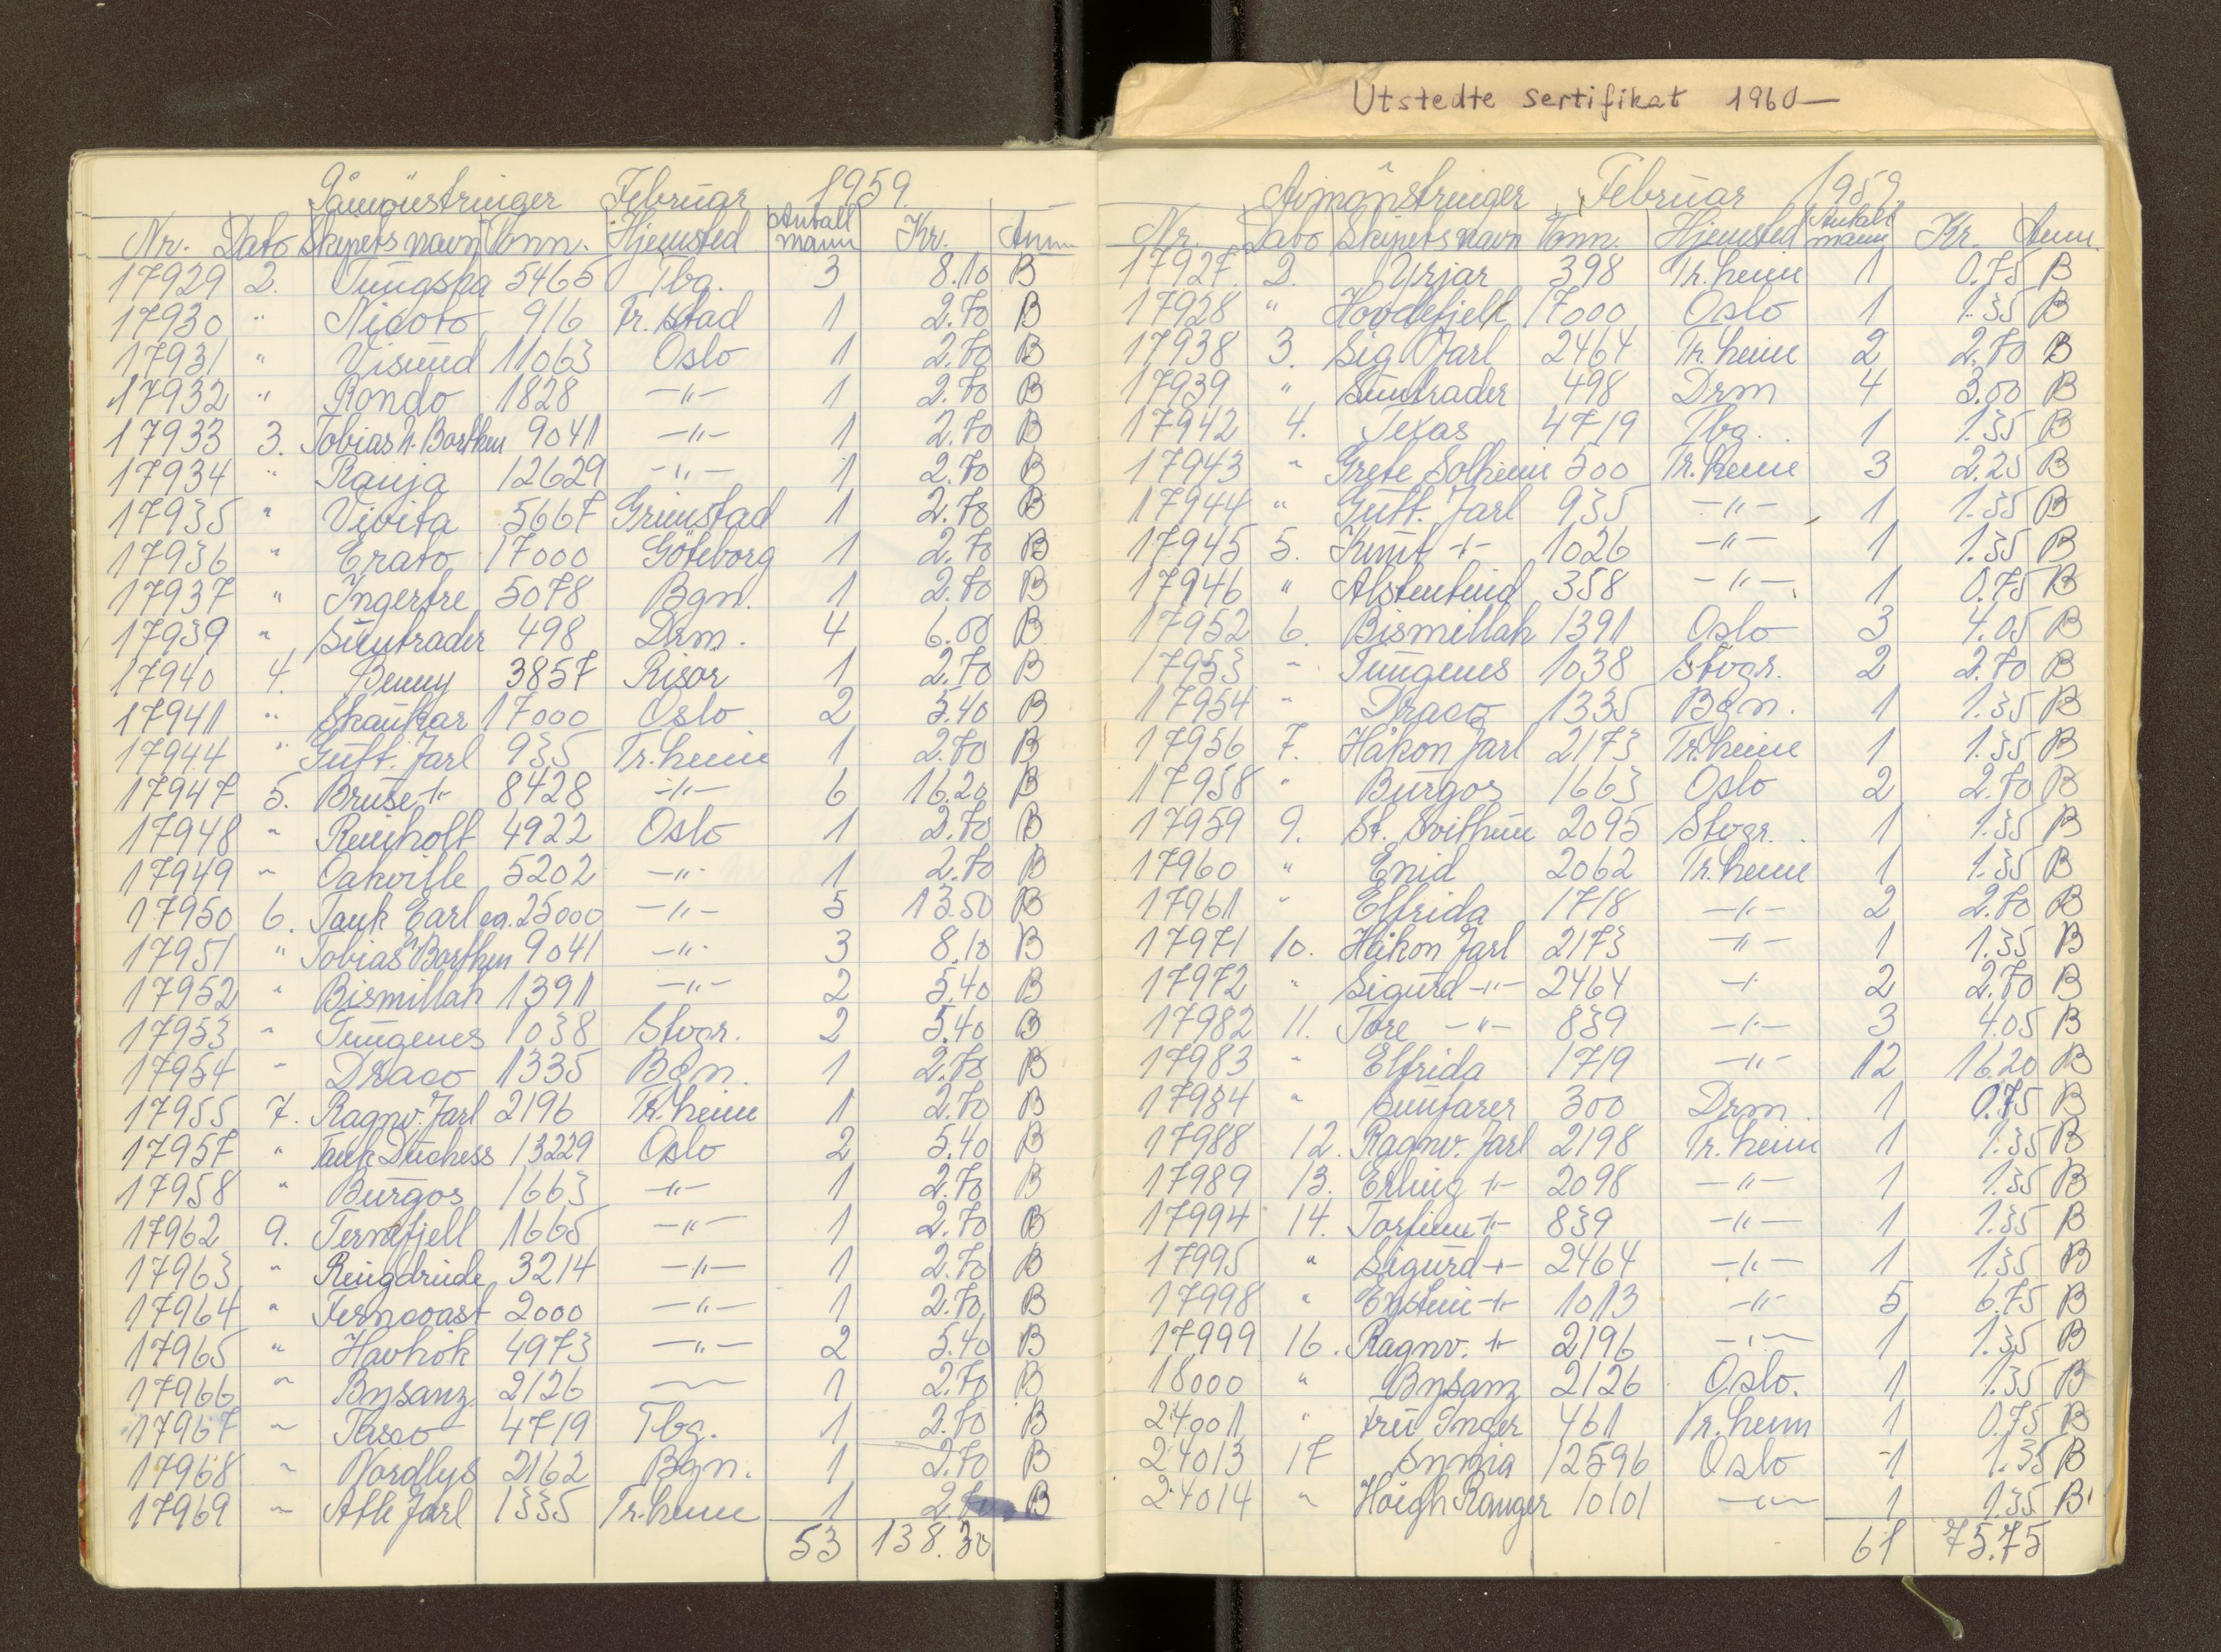 Utstedte sertifikat 1960—
Påmönstringer Februar 1959.
Nr. Dato Skipets navn Tonn. Hjemsted Antall mann Kr. Anm
17929 2. Tungsha 5465 Tbg. 3 8.10 B
17930 " Nicoto 916 Fr.stad 1 2.70 B
17931 " Visund 11063 Oslo 1 2.70 B
17932 " Rondo 1828 -"- 1 2.70 B
17933 3. Tobias U. Borthen 9041 -"- 1 2.70 B
17934 " Ranja 12629 -"- 1 2.70 B
17935 " Vivita 5667 Grimstad 1 2.70 B
17936 " Erato 17000 Göteborg 1 2.70 B
17937 " Ingerfre 5078 Bgn. 1 2.70 B
17939 " Suntrader 498 Drm. 4 6.00 B
17940 4. Benny 3857 Risör 1 2.70 B
17941 " Skaukar 17000 Oslo 2 5.40 B
17944 " Gutt. Jarl 935 Tr.heim 1 2.70 B
17947 5. Bruse -"- 8428 -"- 6 16.20 B
17948 " Reinholt 4922 Oslo 1 2.70 B
17949 " Oakville 5202 -"- 1 2.70 B
17950 6. Tank Earl ca. 25000 -"- 5 13.50 B
17951 " Tobias U Borthen 9041 -"- 3 8.10 B
17952 " Bismillah 1391 -"- 2 5.40 B
17953 " Tungenes 1038 Stvgr. 2 5.40 B
17954 " Draco 1335 Bgn. 1 2.70 B
17955 7. Ragnv. Jarl 2196 Tr.heim 1 2.70 B
17957 " Tank Duchess 13229 Oslo 2 5.40 B
17958 " Burgos 1663 -"- 1 2.70 B
17962 9. Ternefjell 1665 -"- 1 2.70 B
17963 " Ringdrude 3214 -"- 1 2.70 B
17964 " Ferncoast 2000 -"- 1 2.70 B
17965 " Havkök 4973 -"- 2 5.40 B
17966 " Bysanz 2126 -"- 1 2.70 B
17967 " Tasco 4719 Tbg. 1 2.70 B
17968 " Nordlys 2162 Bgn. 1 2.70 B
17969 " Atle Jarl 1335 Tr.heim 1 2.70 B
53 138.30
Avmönstringer Februar 1959.
Nr. Dato Skipets navn Tonn. Hjemsted Antall mann Kr. Anm.
17927. 2. Yrjar 398 Tr.heim 1 0.75 B
17928 " Hovdefjell 17000 Oslo 1 1.35 B
17938 3. Sig. Jarl 2464 Tr.heim 2 2.70 B
17939 " Suntrader 498 Drm 4 3.00 B
17942 4. Texas 4719 Tbg. 1 1.35 B
17943 " Grete Solheim 500 Tr.heim 3 2.25 B
17944 " Gutt. Jarl 935 -"- 1 1.35 B
17945 5. Knut -"- 1026 -"- 1 1.35 B
17946 " Alstentind 358 -"- 1 0.75 B
17952 6. Bismillah 1391 Oslo 3 4.05 B
17953 " Tungenes 1038 Stvgr. 2 2.70 B
17954 " Draco 1335 Bgn. 1 1.35 B
17956 7. Håkon Jarl 2173 Tr.heim 1 1.35 B
17958 " Burgos 1663 Oslo 2 2.70 B
17959 9. St. Svithun 2095 Stvgr. 1 1.35 B
17960 " Enid 2062 Tr.heim 1 1.35 B
17961 " Elfrida 1718 -"- 2 2.70 B
17971 10. Håkon Jarl 2173 -"- 1 1.35 B
17972 " Sigurd -"- 2464 -"- 2 2.70 B
17982 11. Tore -"- 839 -"- 3 4.05 B
17983 " Elfrida 1719 -"- 12 16.20 B
17984 " Sunfarer 300 Drm. 1 0.75 B
17988 12. Ragnv. Jarl 2198 Tr.heim 1 1.35 B
17989 13. Erling -"- 2098 -"- 1 1.35 B
17994 14. Torfinn -"- 839 -"- 1 1.35 B
17995 " Sigurd -"- 2464 -"- 1 1.35 B
17998 " Eystein -"- 1013 -"- 5 6.75 B
17999 16. Ragnv. -"- 2196 -"- 1 1.35 B
18000 " Bysanz 2126 Oslo. 1 1.35 B
24001 " Fru Inger 461 Tr.heim 1 0.75 B
24013 17 Synnia 12596 Oslo 1 1.35 B
24014 " Höegh Ranger 10101 -"- 1 1.35 B
61 75.75